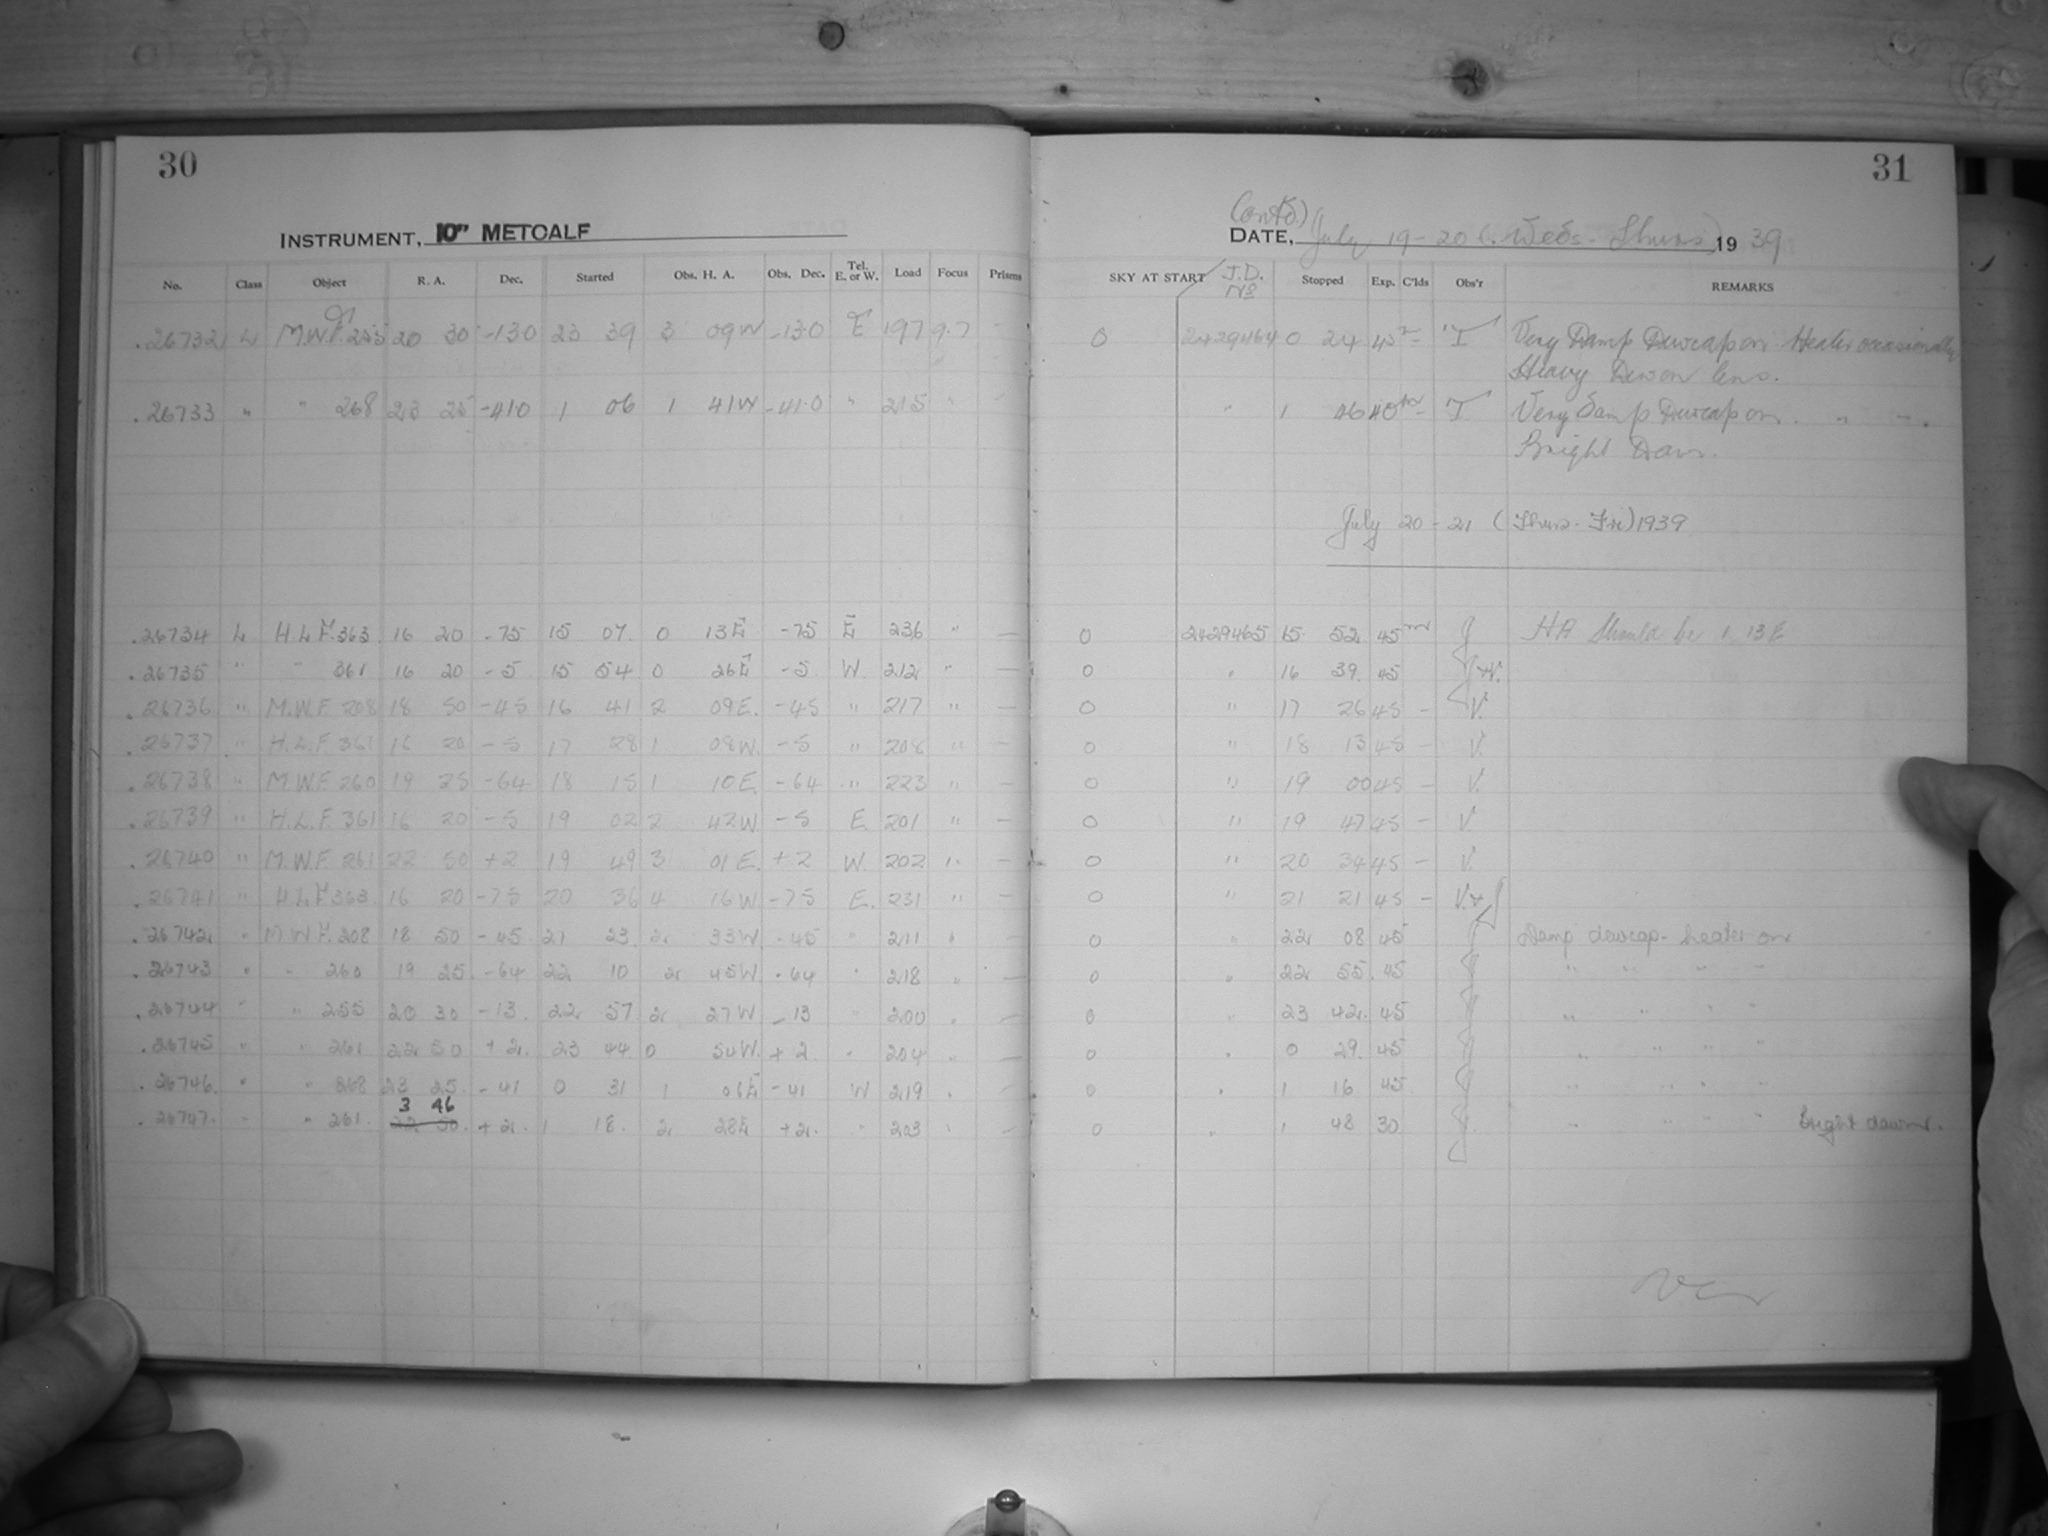 30
31
INSTRUMENT, 10" METCALF
(Contd.)
DATE, July 19-20 (Weds. Thurs) 1939
No. Class Object R. A. Dec. Started Obs. H. A. Obs. Dec. Tel. E. or W. Load Focus Prisms SKY AT START J.D. No Stopped Exp. C'lds Obs'r REMARKS
.26732 L M.W.F. 255 20 30 -13.0 23 39 3 09W -13.0 E 197 9.7 - 0 2429464 0 24 45m - T Very Damp Dewcap on Heater occasionally
Heavy Dew on lens.
.26733 " " 268 23 25 -41.0 1 06 1 41W -41.0 " 215 " - " 1 06 40m - T Very Damp Dewcap on. " - .
Bright Dawn.
July 20-21 (Thurs. Fri) 1939
.26734 L H.L.F. 363 16 20 -75 15 07 0 13E -75 E 236 " - 0 2429465 15 52 45m J HA Should be 1 13E
.26735 " " 361 16 20 -5 15 54 0 26E -5 W. 212 " - 0 " 16 39 45 J+V.
.26736 " M.W.F. 208 18 50 -45 16 41 2 09E. -45 " 217 " - 0 " 17 26 45 - V.
.26737 " H.L.F. 361 16 20 -5 17 28 1 08W. -5 " 208 " - 0 " 18 13 45 - V.
.26738 " M.W.F. 260 19 25 -64 18 15 1 10E. -64 " 223 " - 0 " 19 00 45 - V.
.26739 " H.L.F. 361 16 20 -5 19 02 2 42W -5 E. 201 " - 0 " 19 47 45 - V.
.26740 " M.W.F. 261 22 50 +2 19 49 3 01E. +2 W. 202 " - 0 " 20 34 45 - V.
.26741 " H.L.F. 363 16 20 -75 20 36 4 16W -75 E. 231 " - 0 " 21 21 45 - V.+J
.26742 " M.W.F. 208 18 50 -45 21 23 2 33W -45 " 211 " - 0 " 22 08 45 Damp dewcap - heater on
.26743 " " 260 19 25 -64 22 10 2 45W -64 " 218 " - 0 " 22 55 45 " " " "
.26744 " " 255 20 30 -13. 22 57 2 27W -13 " 200 " - 0 " 23 42 45 " " " "
.26745 " " 261 22 50 +2 23 44 0 54W. +2 " 204 " - 0 " 0 29 45 " " " "
.26746 " " 268 23 25 -41 0 31 1 06E -41 W 219 " - 0 " 1 16 45 " " " "
3 46
.26747. " " 261 22 50. +2 1 18. 2 28E +2. " 203 " - 0 " 1 48 30 " " " " Bright dawn.